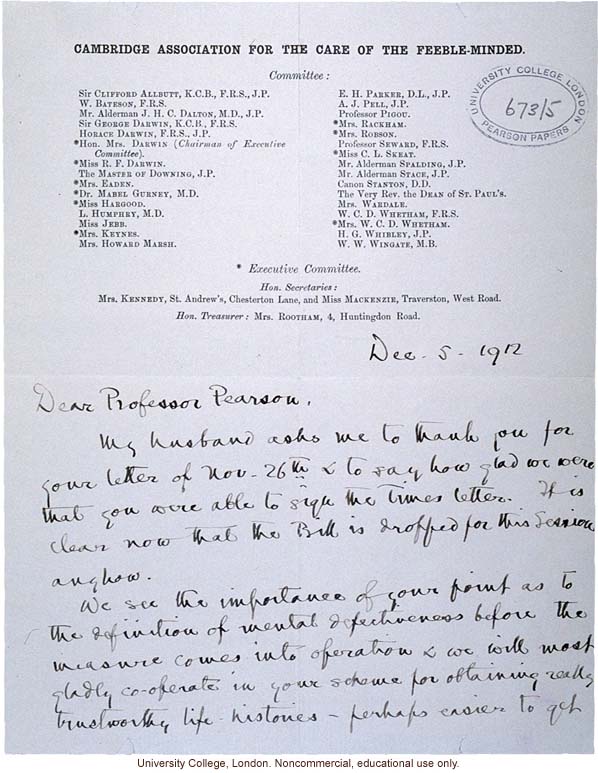 CAMBRIDGE ASSOCIATION FOR THE CARE OF THE FEEBLE-MINDED.
Committee:
Sir CLIFFORD ALLBUTT, K.C.B., F.R.S., J.P.
W. BATESON, F.R.S.
Mr. Alderman J. H. C. DALTON, M.D., J.P.
Sir GEORGE DARWIN, K.C.B., F.R.S.
HORACE DARWIN, F.R.S., J.P.
*Hon. Mrs. DARWIN (Chairman of Executive
Committee).
*Miss R. F. DARWIN.
The MASTER OF DOWNING, J.P.
*Mrs. EADEN.
*Dr. MABEL GURNEY, M.D.
*Miss HARGOOD.
L. HUMPHRY, M.D.
Miss JEBB.
*Mrs. KEYNES.
Mrs. HOWARD MARSH.
E. H. PARKER, D.L., J.P.
A. J. PELL, J.P.
Professor PIGOU.
*Mrs. RACKHAM.
*Mrs. ROBSON.
Professor SEWARD, F.R.S.
*Miss C. L. SKEAT.
Mr. Alderman SPALDING, J.P.
Mr. Alderman STACE, J.P.
Canon STANTON, D.D.
The Very Rev. the DEAN OF ST. PAUL'S.
Mrs. WARDALE.
W. C. D. WHETHAM, F.R.S.
*Mrs. W. C. D. WHETHAM.
H. G. WHIBLEY, J.P.
W. W. WINGATE, M.B.
UNIVERSITY COLLEGE, LONDON
673/5
PEARSON PAPERS
* Executive Committee.
Hon. Secretaries:
Mrs. KENNEDY, St. Andrew's, Chesterton Lane, and Miss MACKENZIE, Traverston, West Road.
Hon. Treasurer: Mrs. ROOTHAM, 4, Huntingdon Road.
Dec. 5. 1912
Dear Professor Pearson,
My husband asks me to thank you for
your letter of Nov. 26th & to say how glad we were
that you were able to sign the Times letter. It is
clear now that the Bill is dropped for this Session
anyhow.
We see the importance of your point as to
the definition of mental defectiveness before the
measure comes into operation & we will most
gladly co-operate in your scheme for obtaining really
trustworthy life-histories - perhaps easier to get
University College, London. Noncommercial, educational use only.